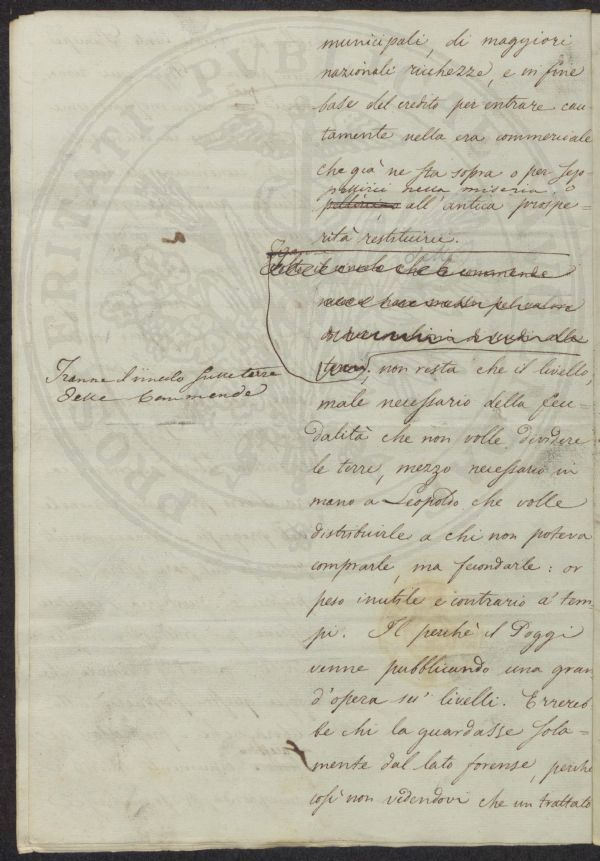 municipali, di maggiori
nazionali ricchezze, e in fine
base del credito per entrare cau-
tamente nella era commerciale
che già ne sta sopra o per sep-
pellirci nella miseria o
all'antica prospe-
rità restituirci.
Tranne il vincolo sulle terre
delle Commende
non resta che il livello,
male necessario della feu-
dalità che non volle dividere
le terre, mezzo necessario in
mano a Leopoldo che volle
distribuirle a chi non poteva
comprarle, ma fecondarle: or
peso inutile e contrario a' tem-
pi. Il perchè il Poggi
venne pubblicando una gran
d'opera su' livelli. Errereb-
be chi la guardasse sola-
mente dal lato forense, perchè
così non vedendovi che un trattato
PROPRIETATI PVB